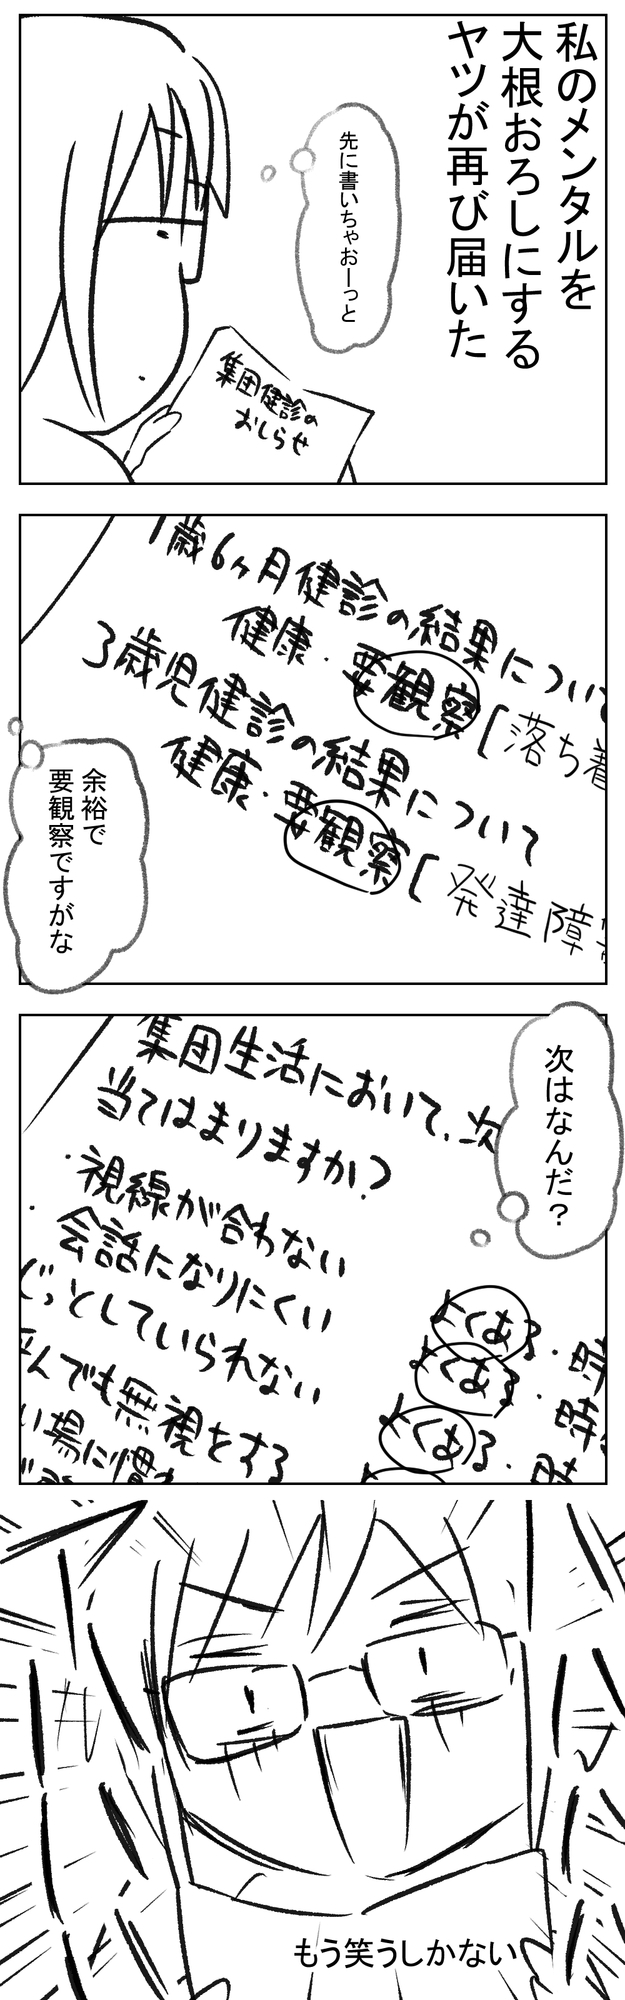 私のメンタルを
大根おろしにする
ヤツが再び届いた
先に書いちゃおーっと
集団健診の
おしらせ
1歳6ヶ月健診の結果について
健康・要観察[落ち着
3歳児健診の結果について
健康・要観察[発達障
余裕で
要観察ですがな
次はなんだ?
集団生活において、次
当てはまりますか?
・視線が合わない よくある・時
・会話になりにくい よくある・時
じっとしていられない よくある・
んでも無視をする
い場に慣
もう笑うしかない